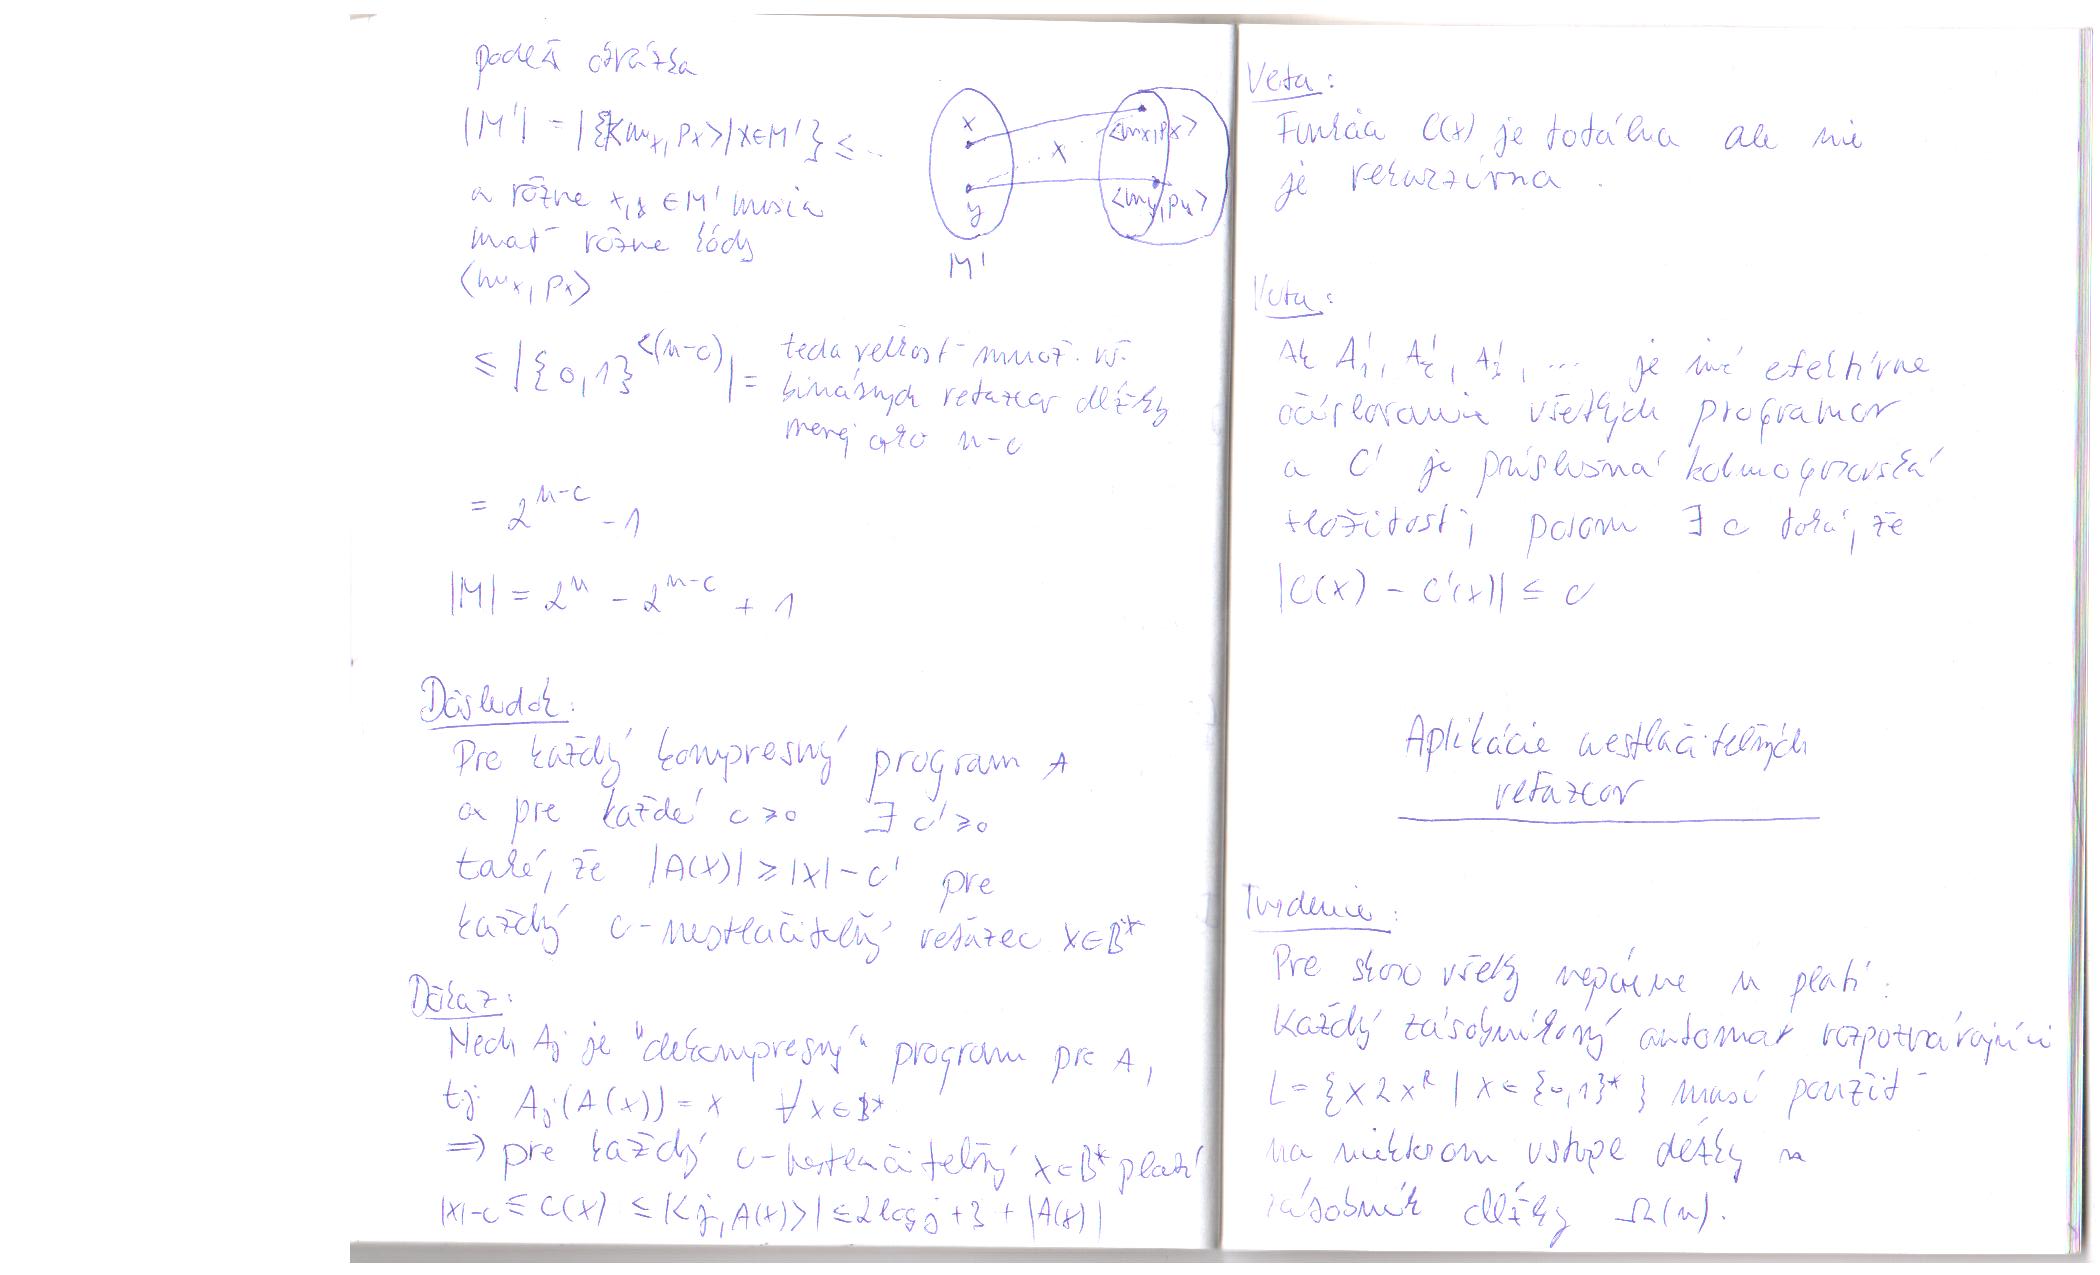 podľa obrázka
|M'| = |{<m_x, p_x> | x∈M'}| ≤ ...
a rôzne x,y ∈ M' musia
mať rôzne kódy
<m_x, p_x>
x
y
M'
x
<m_x, p_x>
<m_y, p_y>
≤ |{0,1}^{<(n-c)}| =
teda veľkosť množ. vš.
binárnych reťazcov dĺžky
menej ako n-c
= 2^{n-c} - 1
|M| = 2^n - 2^{n-c} + 1
Dôsledok:
Pre každý kompresný program A
a pre každé c ≥ 0 ∃ c' ≥ 0
také, že |A(x)| ≥ |x| - c' pre
každý c-nestlačiteľný reťazec x∈B*
Dôkaz:
Nech A_j je "dekompresný" program pre A,
t.j. A_j(A(x)) = x ∀x∈B*
⇒ pre každý c-nestlačiteľný x∈B* platí
|x|-c ≤ C(x) ≤ |<j, A(x)>| ≤ 2 log j + 3 + |A(x)|
Veta:
Funkcia C(x) je totálna ale nie
je rekurzívna.
Veta:
Ak A'_1, A'_2, A'_3, ... je iné efektívne
očíslovanie všetkých programov
a C' je príslušná kolmogorovská
zložitosť, potom ∃ c také, že
|C(x) - C'(x)| ≤ c
Aplikácie nestlačiteľných
reťazcov
Tvrdenie:
Pre skoro všetky nepárne n platí:
Každý zásobníkový automat rozpoznávajúci
L = {x2x^R | x ∈ {0,1}*} musí použiť
na niektorom vstupe dĺžky n
zásobník dĺžky Ω(n).